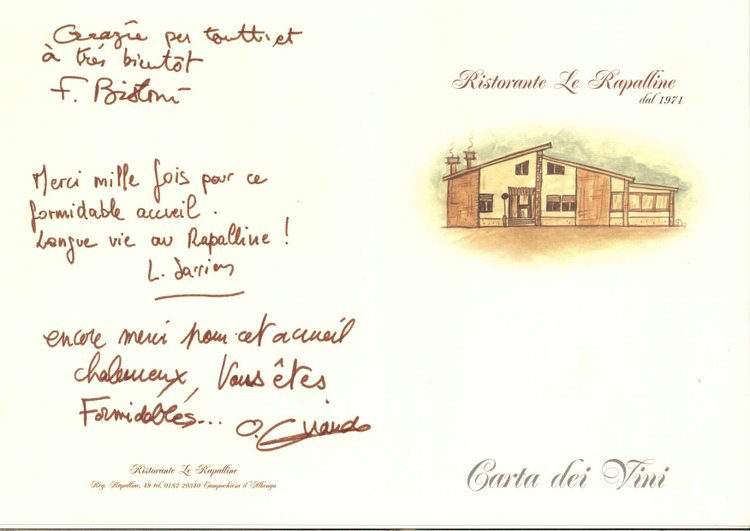 Grazie per toutti et
à très bientôt
F. Bistoni
Merci mille fois pour ce
formidable accueil.
Longue vie au Rapalline !
L. Jarrien
encore merci pour cet accueil
chaleureux, Vous êtes
Formidables...
O.
Ristorante Le Rapalline
Reg. Rapalline, 49 tel. 0182 20340 Campochiesa d'Albenga
Ristorante Le Rapalline
dal 1971
Carta dei Vini